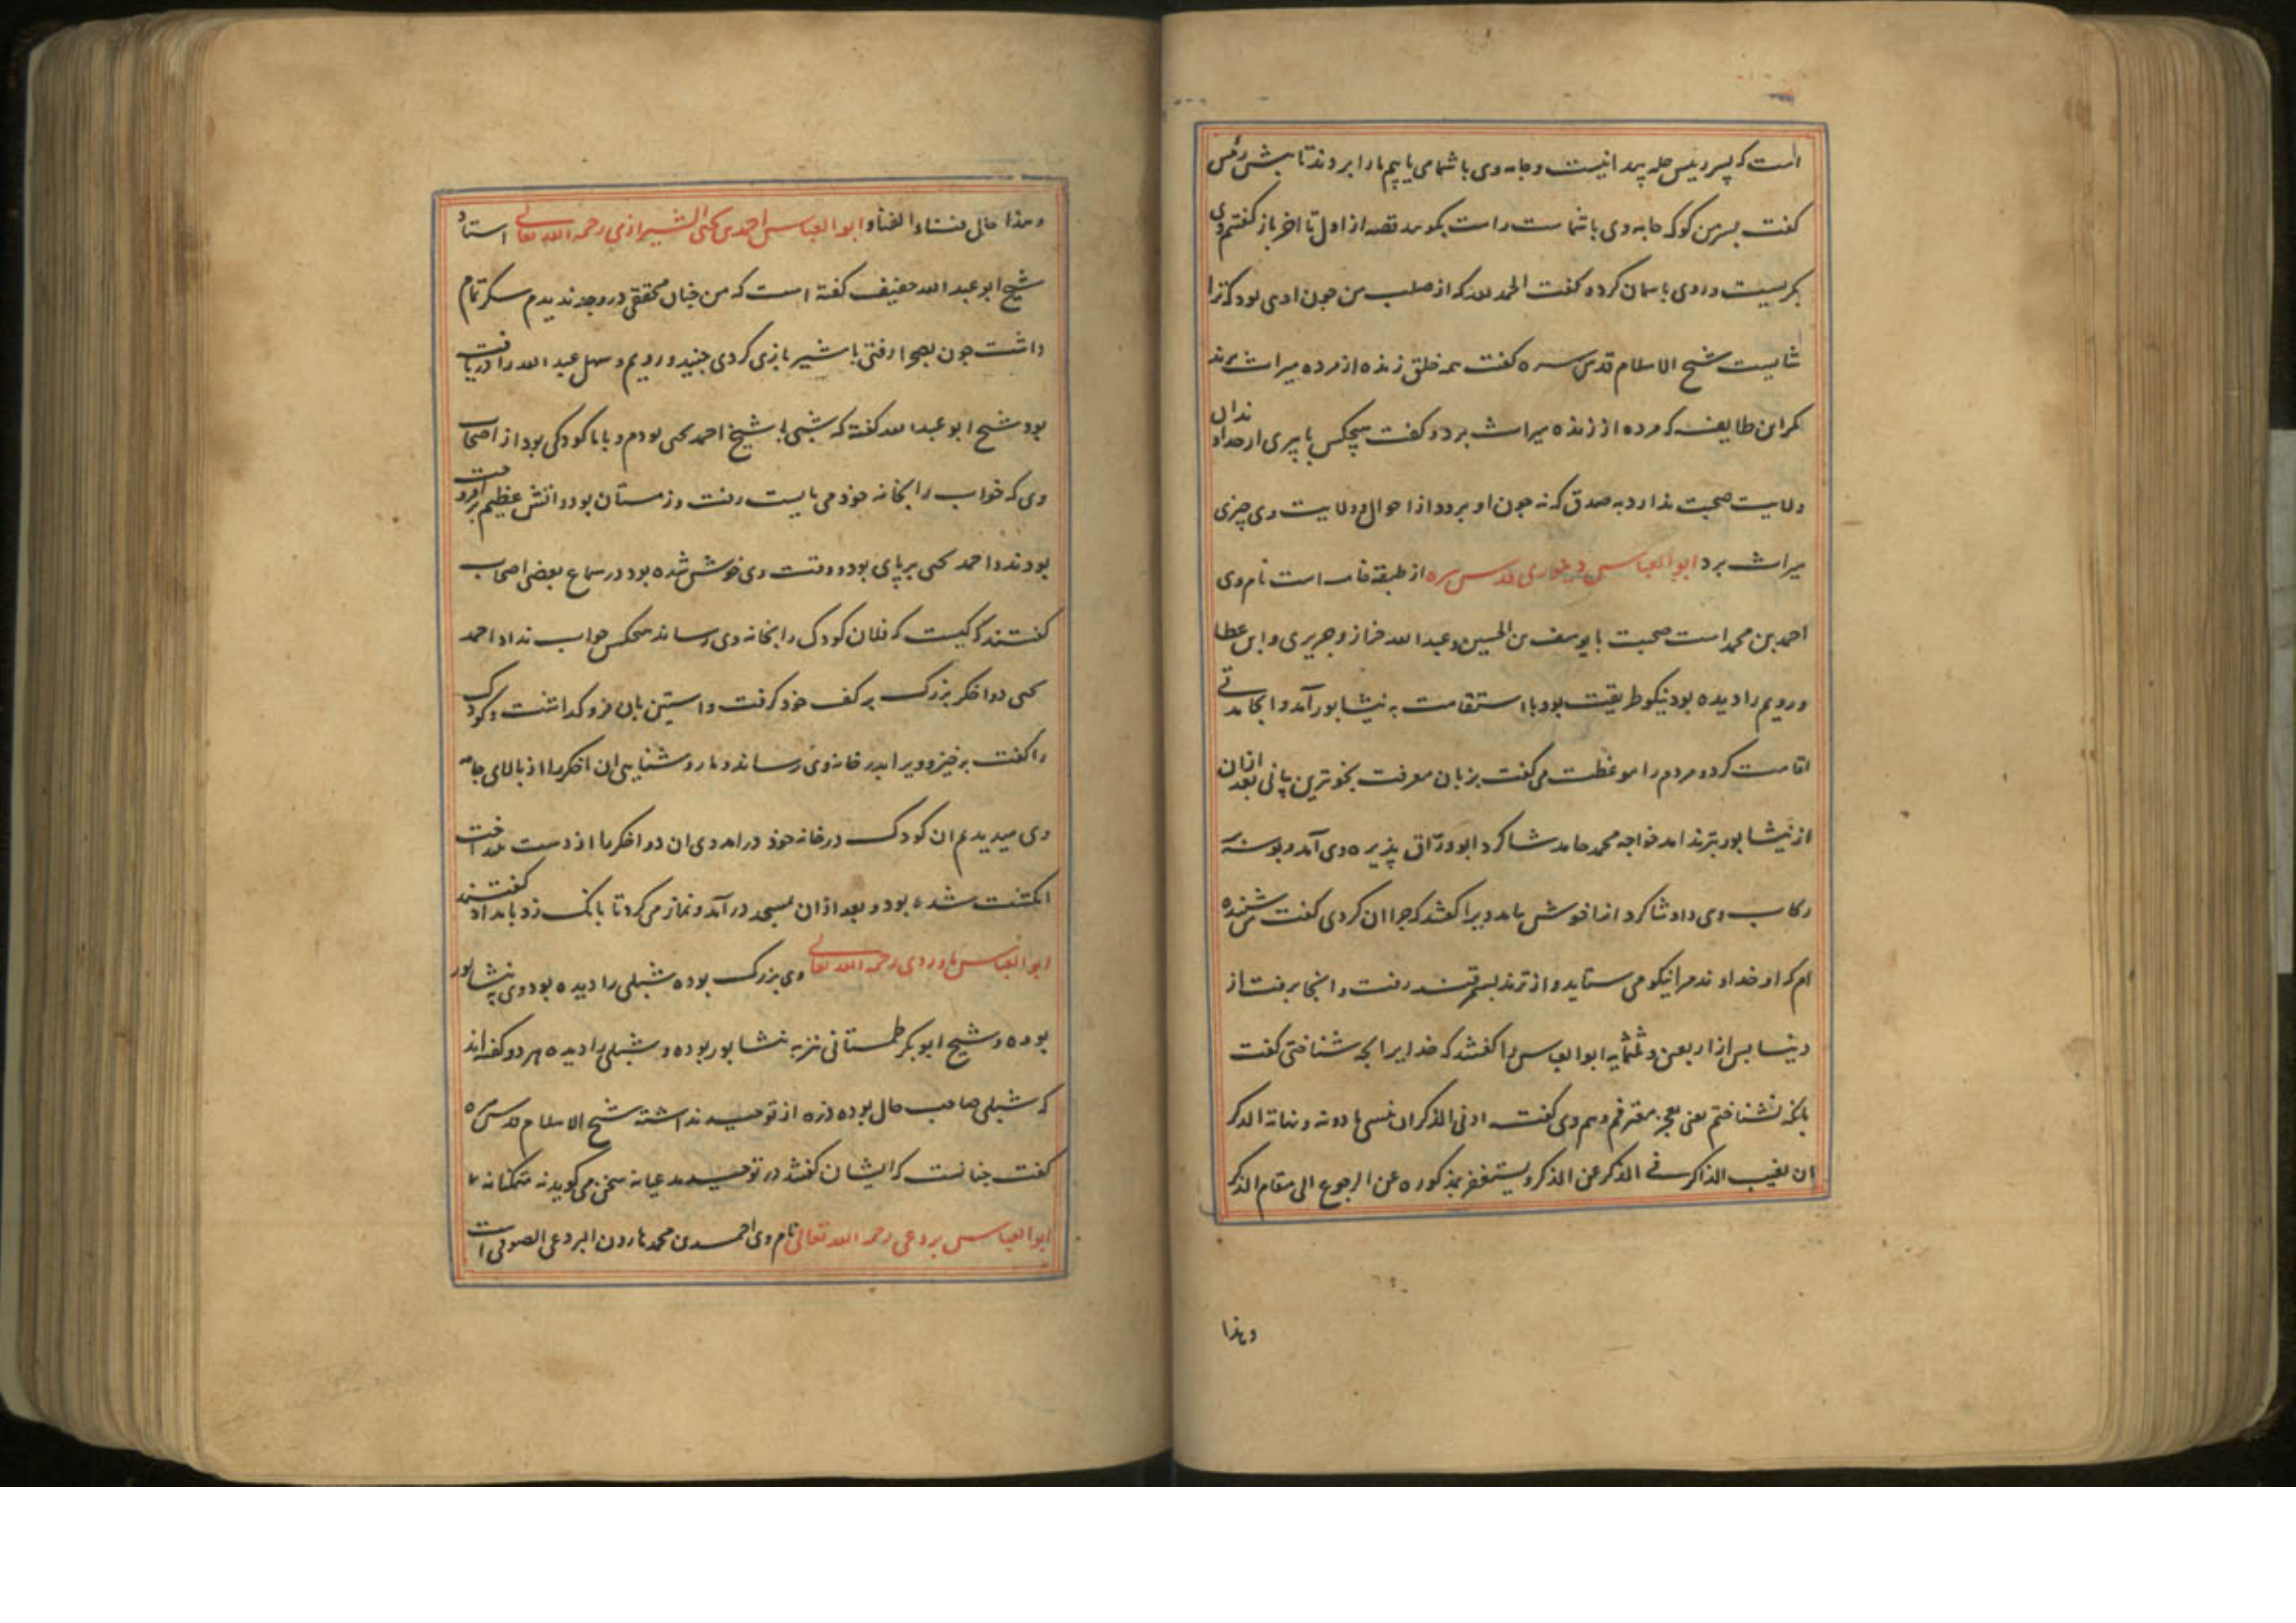 است که پسر رییس حله پیدا نیست و جامه وی با شما می یابیم ما را بردند تا پیش رئیس
گفت پسر من کو که جامه وی با شماست راست بگویید قصه از اول تا اخر باز گفتم وی
بگریست و روی باسمان کرد و گفت الحمد لله که از صلب من چون اویی بود که ترا
شایست شیخ الاسلام قدس سره گفت همه خلق زنده از مرده میراث برند
مگر این طایفه که مرده از زنده میراث برد و گفت هیچکس با پیری از خداوندان
ولایت صحبت ندارد به صدق که نه چون او برود از احوال و ولایت وی چیزی
میراث برد ابوالعباس دینوری قدس سره از طبقه خامسه است نام وی
احمد بن محمد است صحبت با یوسف بن الحسین و عبد الله خراز و جریری و ابن عطا
و رویم را دیده بود نیکو طریقت بود با استقامت به نیشابور آمد و آنجا مدتی
اقامت کرد و مردم را موعظت می گفت بزبان معرفت بخوترین بیانی بعد ازان
از نیشابور بترمد امد خواجه محمد حامد شاگرد ابو ورّاق پذیره وی آمد و بوسه بر
رکاب وی داد شاگرد انرا خوش نامد ویرا گفتند که چرا ان کردی گفت من شنیده
ام که او خداوند مرا نیکو می ستاید و از ترمد بسمرقند رفت و انجا برفت از
دنیا پس از اربعین و ثلثمایه ابوالعباس را گفتند که خدایرا بچه شناختی گفت
بانکه نشناختم یعنی بعجز معترفم و هم وی گفت ادنی الذکر ان ننسی ما دونه و نهایة الذکر
ان یغیب الذاکر فی الذکر عن الذکر و یستغفر بمذکوره عن الرجوع الی مقام الذکر
وهذا
وهذا حال فناء الفناء ابوالعباس احمد بن یحیی الشیرازی رحمه الله تعالی استاد
شیخ ابو عبد الله خفیف گفته است که من چنان محققی در وجد ندیدم سکر تمام
داشت چون بصحرا رفتی با شیر بازی کردی جنید و رویم و سهل عبد الله را دریافته
بود شیخ ابو عبد الله گفته که شبی با شیخ احمد یحیی بودم و با ما کودکی بود از اصحاب
وی که خواب را بخانه خود می بایست رفت و زمستان بود و اتش عظیم برافروخته
بودند و احمد یحیی بر پای بود و وقت وی خوش شده بود در سماع بعضی اصحاب
گفتند که کیست که فلان کودک را بخانه وی رساند هیچکس جواب نداد احمد
یحیی دو اخگر بزرگ بر کف خود گرفت و استین بان فرو گذاشت و کودک
را گفت برخیز و ویرا بدر خانه وی رساند و ما روشنایی ان اخگرها از بالای جامه
وی میدیدیم ان کودک در خانه خود درامد وی ان دو اخگرها از دست بینداخت
انگشت شده بود و بعد ازان بمسجد درآمد و نماز می کرد تا بانگ زد بامداد گفتند
ابوالعباس باوردی رحمه الله تعالی وی بزرگ بوده شبلی را دیده بود وی بنیشابور
بوده و شیخ ابوبکر طمستانی نیز به نشابور بوده و شبلی را دیده هر دو گفته اند
که شبلی صاحب حال بوده ذره از توحید نداشته شیخ الاسلام قدس سره
گفت چنانست که ایشان گفتند در توحید مدعیانه سخن می گوید نه متمکنانه
ابوالعباس بردعی رحمه الله تعالی نام وی احمد بن محمد هارون البردعی الصوفی است